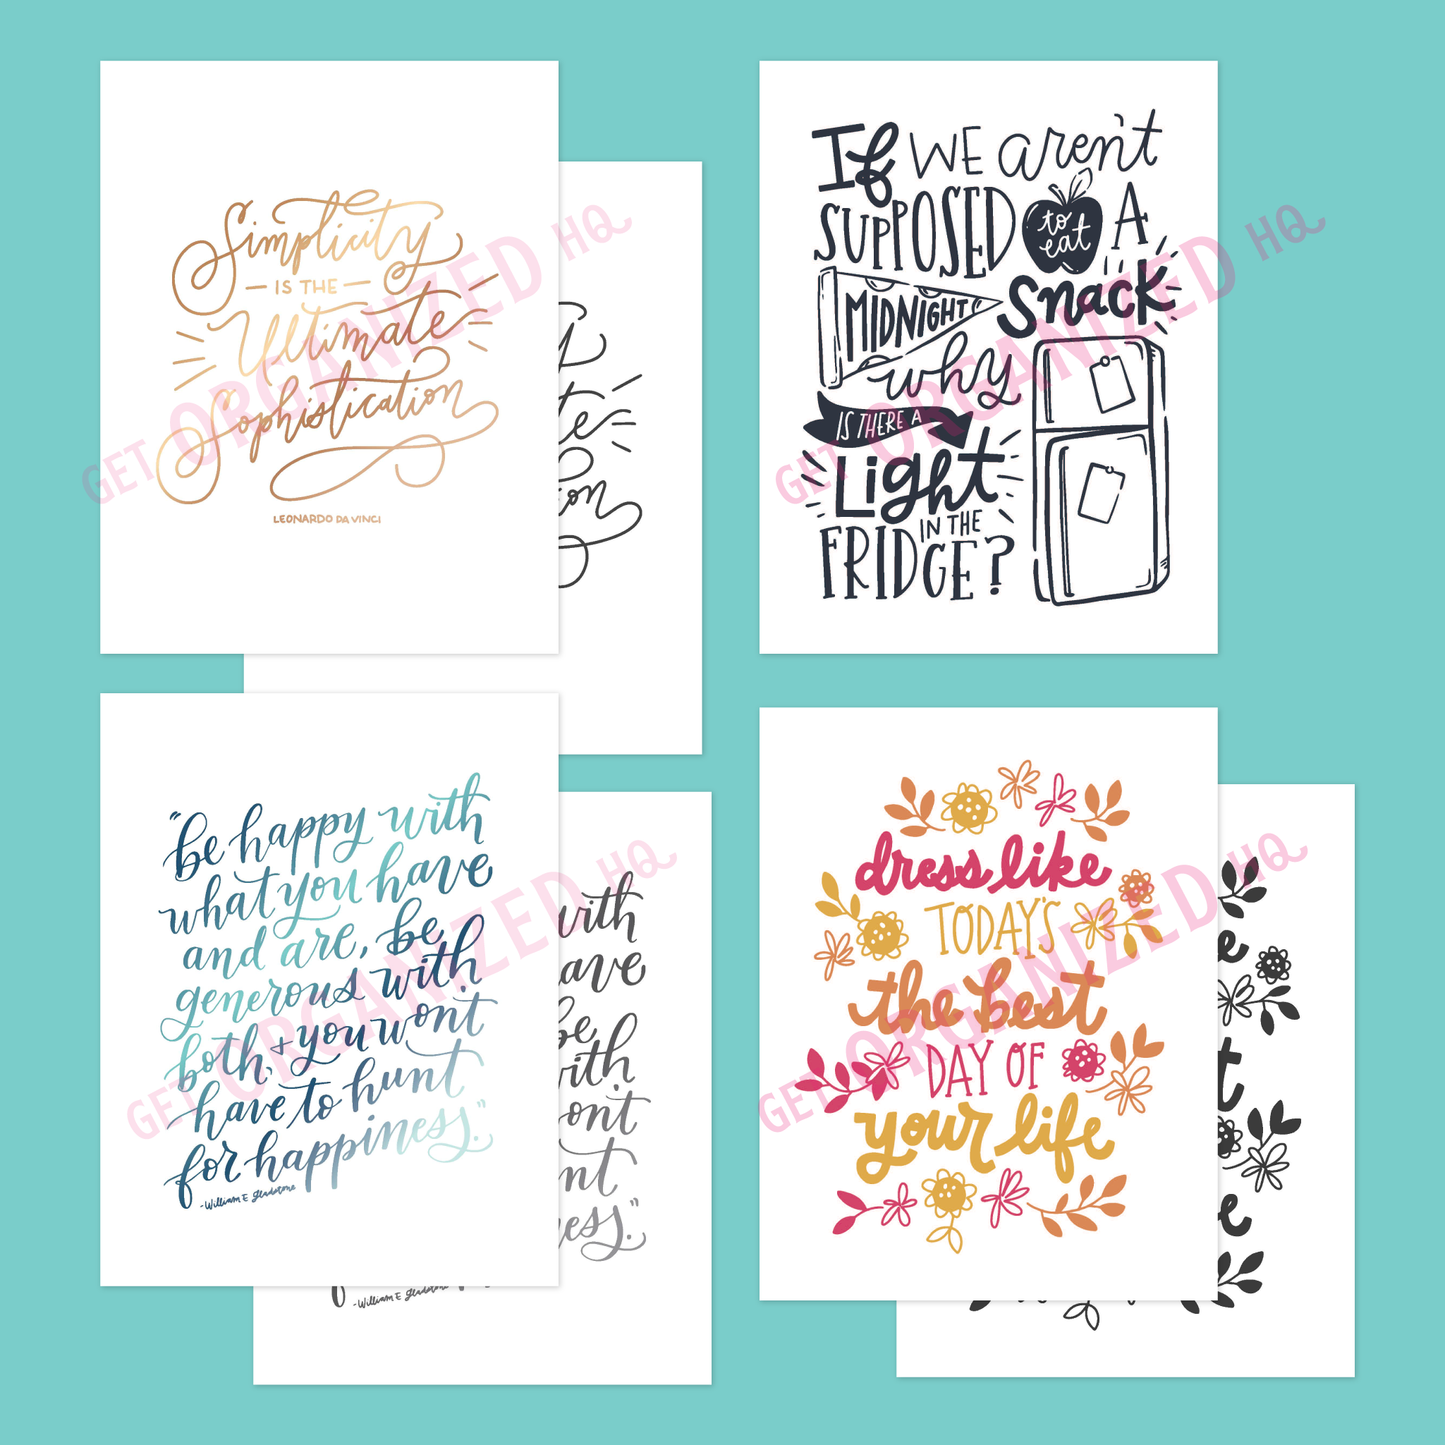 Simplicity
— IS THE —
Ultimate
Sophistication
LEONARDO DA VINCI
GET ORGANIZED HQ
If WE aren't
SUPPOSED to eat A
MIDNIGHT Snack
why
IS THERE A
Light
IN THE
FRIDGE?
GET ORGANIZED HQ
"be happy with
what you have
and are, be
generous with
both, + you won't
have to hunt
for happiness."
-William E Gladstone
GET ORGANIZED HQ
with
have
be
with
won't
hunt
-William E Gladstone
dress like
TODAY'S
the best
DAY OF
your life
GET ORGANIZED HQ